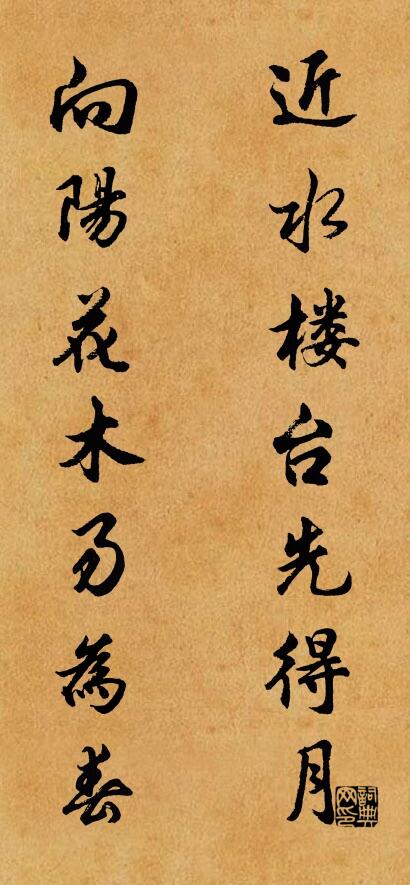 近水楼台先得月
向陽花木易為春
詞典网印